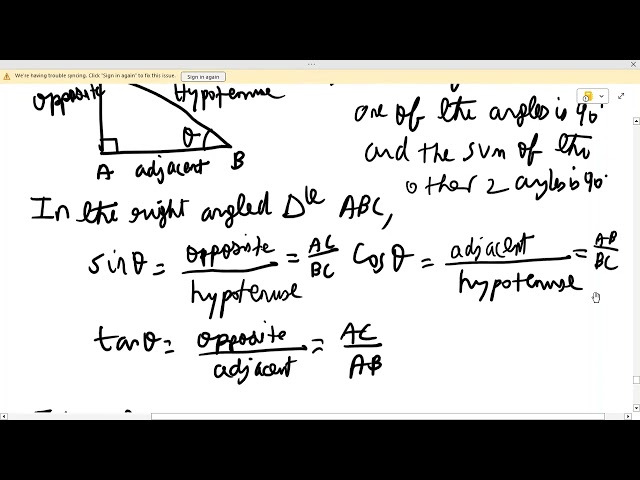 We're having trouble syncing. Click "Sign in again" to fix this issue.
Sign in again
opposite
hypotenuse
θ
A
adjacent
B
one of the angles is 90°
and the sum of the
other 2 angles is 90°
In the right angled Δle ABC,
sinθ = opposite/hypotenuse = AC/BC cosθ = adjacent/hypotenuse = AB/BC
tanθ = opposite/adjacent = AC/AB